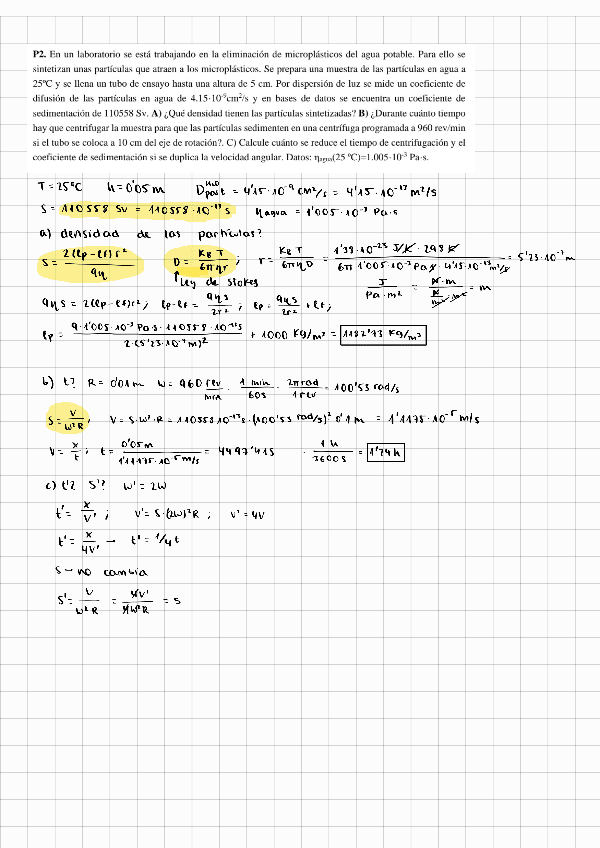 P2. En un laboratorio se está trabajando en la eliminación de microplásticos del agua potable. Para ello se
sintetizan unas partículas que atraen a los microplásticos. Se prepara una muestra de las partículas en agua a
25ºC y se llena un tubo de ensayo hasta una altura de 5 cm. Por dispersión de luz se mide un coeficiente de
difusión de las partículas en agua de 4.15·10⁻⁹cm²/s y en bases de datos se encuentra un coeficiente de
sedimentación de 110558 Sv. A) ¿Qué densidad tienen las partículas sintetizadas? B) ¿Durante cuánto tiempo
hay que centrifugar la muestra para que las partículas sedimenten en una centrífuga programada a 960 rev/min
si el tubo se coloca a 10 cm del eje de rotación?. C) Calcula cuánto se reduce el tiempo de centrifugación y el
coeficiente de sedimentación si se duplica la velocidad angular. Datos: ηagua(25 ºC)=1.005·10⁻³ Pa·s.
T = 25ºC h = 0'05 m D part H₂O = 4'15·10⁻⁹ cm²/s = 4'15·10⁻¹³ m²/s
S = 110558 Sv = 110558·10⁻¹³ s ηagua = 1'005·10⁻³ Pa·s
a) densidad de las partículas?
S = 2(ρp-ρf)r² / 9η D = KB T / 6πηr ; r = KB T / 6πηD = 1'38·10⁻²³ J/K · 298 K / 6π 1'005·10⁻³ Pa·s · 4'15·10⁻¹³ m²/s = 5'23·10⁻⁷ m
↑ Ley de Stokes J / Pa·m² = N·m / N/m² · m² = m
9ηS = 2(ρp-ρf)r² ; ρp-ρf = 9ηS / 2r² ; ρp = 9ηS / 2r² + ρf ;
ρp = 9·1'005·10⁻³ Pa·s · 110558·10⁻¹³ s / 2·(5'23·10⁻⁷ m)² + 1000 Kg/m³ = 1182'73 Kg/m³
b) t? R = 0'01 m w = 960 rev/min · 1 min / 60 s · 2π rad / 1 rev = 100'53 rad/s
S = V / w²R ; V = S·w²·R = 110558·10⁻¹³ s · (100'53 rad/s)² 0'1 m = 1'1175·10⁻⁵ m/s
V = x / t ; t = 0'05 m / 1'11175·10⁻⁵ m/s = 4497'41 s · 1 h / 3600 s = 1'24 h
c) t'? S'? w' = 2w
t' = x / V' ; V' = S·(2w)²R ; V' = 4V
t' = x / 4V' → t' = 1/4 t
S → no cambia
S' = V / w²R = 4V' / 4w²R = S